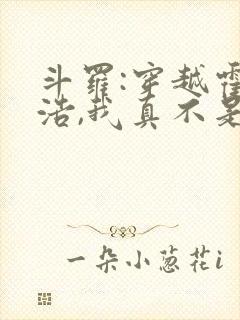 斗罗:穿越霍
浩,我真不是
一朵小葱花i